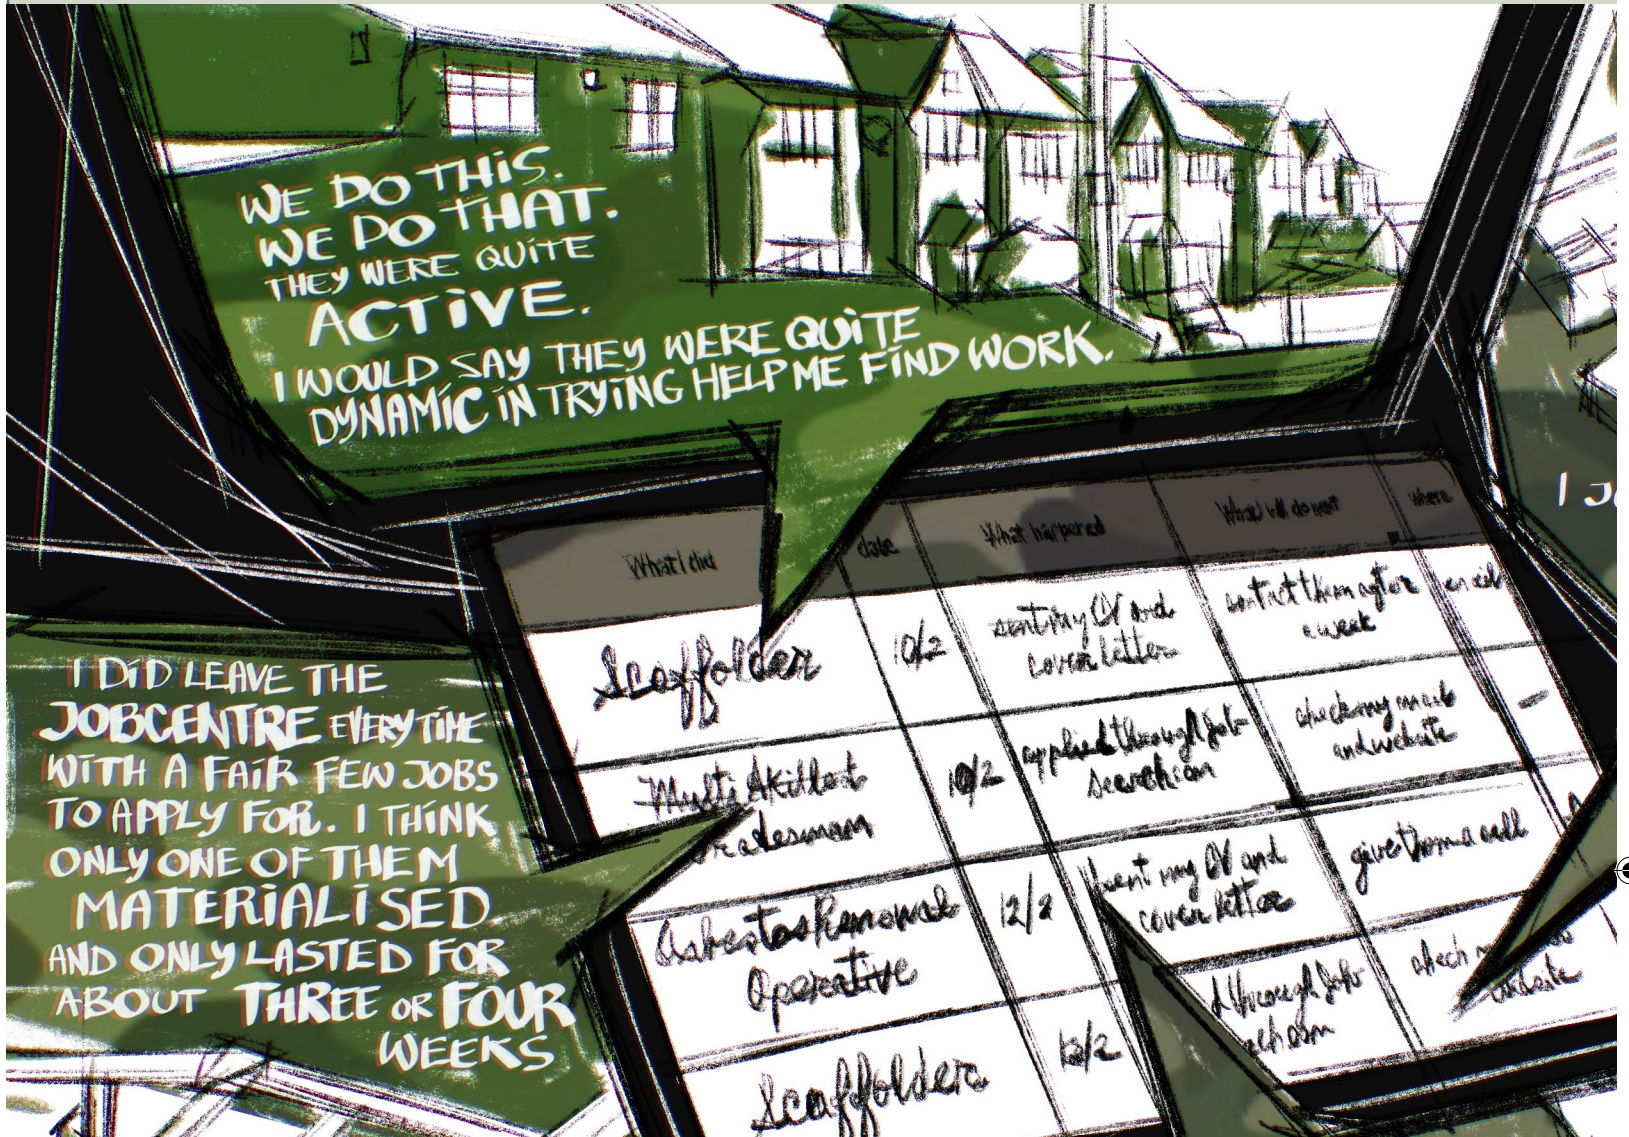 WE DO THIS.
WE DO THAT.
THEY WERE QUITE
ACTIVE.
I WOULD SAY THEY WERE QUITE
DYNAMIC IN TRYING HELP ME FIND WORK.
I DID LEAVE THE
JOBCENTRE EVERY TIME
WITH A FAIR FEW JOBS
TO APPLY FOR. I THINK
ONLY ONE OF THEM
MATERIALISED
AND ONLY LASTED FOR
ABOUT THREE OR FOUR
WEEKS
What I did
date
What happened
What I will do next
where
Scaffolder
10/2
sent my CV and
cover letter
contact them after
a week
Multi Skilled
10/2
applied through job
check my
and website
-
Asbestos Removal
Operative
12/2
sent my CV and
cover letter
give them a call
Scaffolder
12/2
through Job
check
website
I